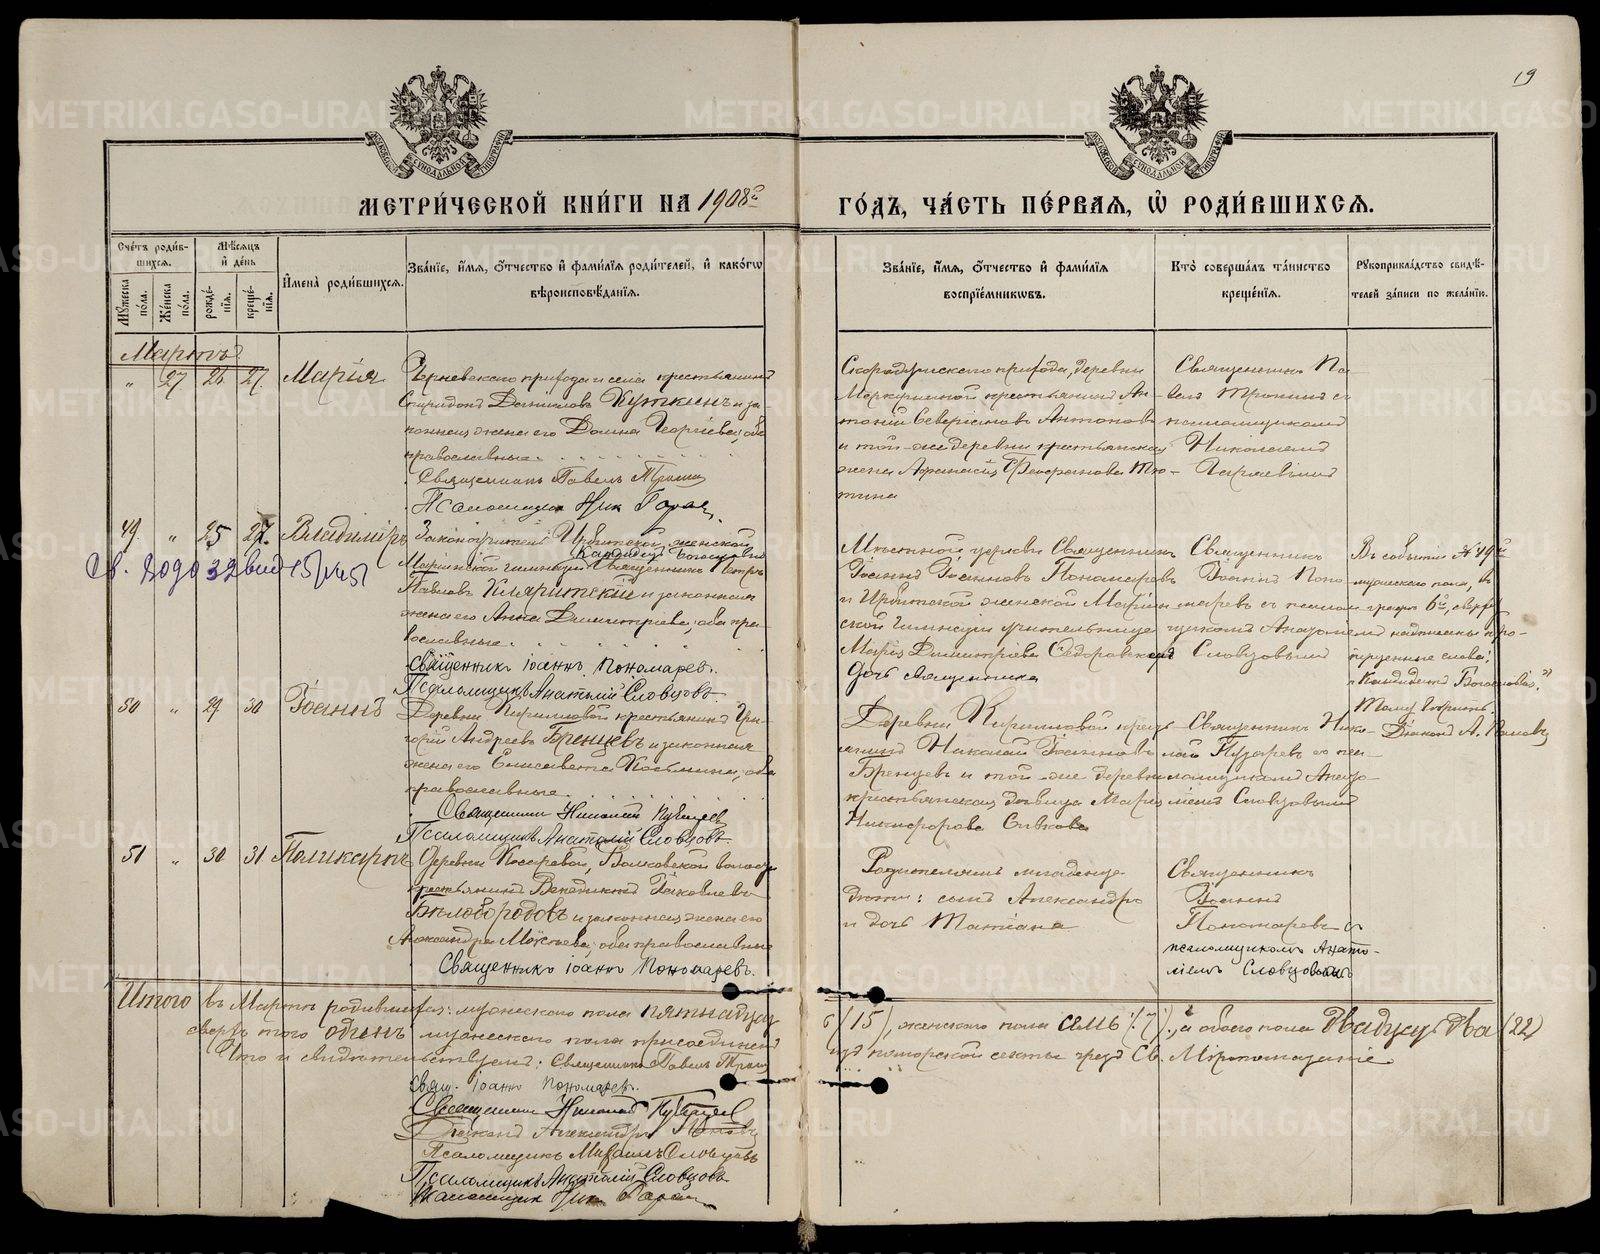 19
МЕТРИ́ЧЕСКОЙ КНИ́ГИ НА 1908й
ГО́ДЪ, ЧА́СТЬ ПЕ́РВАЯ, Ѽ РОДИ́ВШИХСЯ.
Сче́тъ роди́вшихся.
Мѣ́сяцъ и҆ де́нь
Му́жеска по́ла.
Же́нска по́ла.
рожде́нїя.
креще́нїя.
И҆мена̀ роди́вшихся.
Зва́нїе, и҆́мя, о҆́тчество и҆ фами́лїя роди́телей, и҆ како́гѡ
вѣроисповѣ́данїя.
Зва́нїе, и҆́мя, о҆́тчество и҆ фами́лїя
воспрїе́мникѡвъ.
Кто̀ соверша́лъ та́инство
креще́нїя.
Рꙋкоприкла́дство свидѣ́-
телей за́писи по жела́нїю.
Мартъ
" 27 26 27 Марія
Черневскаго прихода и села крестьянинъ
Спиридонъ Даніиловъ Куткинъ и за-
конная жена его Домна Георгіева, оба
православные.
Священникъ Павелъ Тронинъ
Псаломщикъ Ник
Скородумскаго прихода, деревни
Меркушиной крестьянинъ Ан-
тоній Северіановъ Антоновъ
и той-же деревни крестьянская
жена Афанасія Феофанова Тю-
тина
Священникъ Па-
велъ Тронинъ съ
псаломщикомъ
Николаемъ
49 " 25 27. Владиміръ
Законоучитель Ирбитской женской
Кандидатъ Богословія
Маріинской гимназіи Священникъ Петръ
Павловъ Кларитскій и законная
жена его Анна Димитріева, оба пра-
вославные.
Священникъ Іоаннъ Пономаревъ.
Псаломщикъ Анатолій Словцовъ
Св. 15/V 451
Мѣстной церкви Священникъ
Іоаннъ Іоанновъ Пономаревъ
и Ирбитской женской Маріин-
ской гимназіи учительница
Марія Димитріева Сидоровская
дочь священника
Священникъ
Іоаннъ Поно-
маревъ съ псалом-
щикомъ Анатоліемъ
Словцовымъ
Въ событіи № 49й
мужескаго пола, въ
графѣ 6й, сверху
надписаны про-
пущенные слова:
"Кандидатъ Богословія."
Діаконъ А. Поповъ
50 " 29 30 Іоаннъ
Деревни Кирилловой крестьянинъ Гри-
горій Андреевъ Бренцевъ и законная
жена его Елисавета Космина, оба
православные.
Священникъ Николай Кубаревъ
Псаломщикъ Анатолій Словцовъ
Деревни Кирилловой кресть-
янинъ Николай Іоанновъ
Бренцевъ и той-же деревни
крестьянская дѣвица Марія
Никифорова Сивкова
Священникъ Нико-
лай Кубаревъ съ пса-
ломщикомъ Анато-
ліемъ Словцовымъ
51 " 30 31 Поликарпъ
Деревни Косаревой, Волковской волости
крестьянинъ Венедиктъ Іаковлевъ
Бѣлобородовъ и законная жена его
Александра Моисеева, оба православные
Священникъ Іоаннъ Пономаревъ.
Родителямъ младенца
дѣти: сынъ Александръ
и дочь Татіана
Священникъ
Іоаннъ
Пономаревъ съ
псаломщикомъ Анато-
ліемъ Словцовымъ
Итого въ Мартѣ родившихся: мужескаго пола пятнадцать (15), женскаго пола семь (7), а обоего пола двадцать два (22)
сверхъ того одинъ мужескаго пола присоединенъ изъ поморской секты чрезъ Св. Мѵропомазаніе.
Что и свидѣтельствуемъ: Священникъ Павелъ Тронинъ
Свящ. Іоаннъ Пономаревъ.
Священникъ Николай Кубаревъ
Діаконъ Александръ Поповъ
Псаломщикъ Михаилъ Словцовъ
Псаломщикъ Анатолій Словцовъ
Псаломщикъ Ник
METRIKI.GASO-URAL.RU